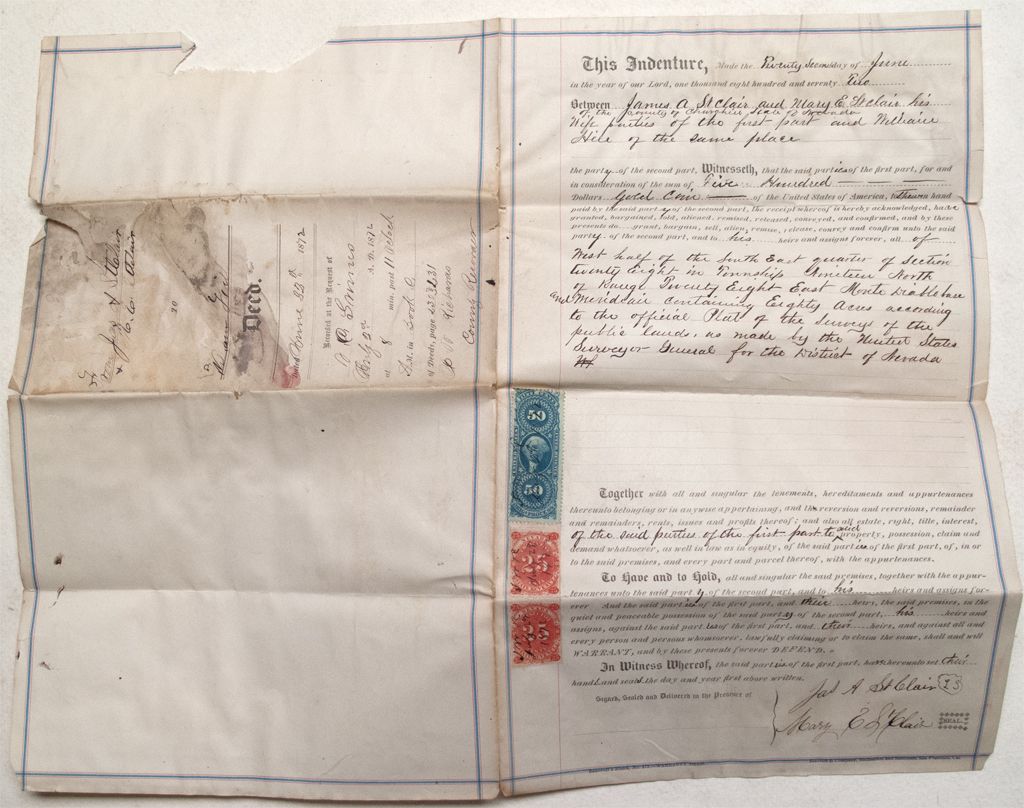 This Indenture, Made the Twenty Second day of June
in the year of our Lord, one thousand eight hundred and seventy Two
Between James A St Clair and Mary E. St Clair his
of the County of Churchill State of Nevada
Wife parties of the first part and William
of the same place
the party of the second part, Witnesseth, that the said parties of the first part, for and
in consideration of the sum of Five Hundred
Dollars Gold Coin of the United States of America, to them in hand
paid by the said party of the second part, the receipt whereof is hereby acknowledged, have
granted, bargained, sold, aliened, remised, released, conveyed, and confirmed, and by these
presents do grant, bargain, sell, alien, remise, release, convey and confirm unto the said
party of the second part, and to his heirs and assigns forever, all of
West half of the South East quarter of Section
twenty Eight in Township Nineteen North
of Range Twenty Eight East Monte Diablo base
and Meridian containing Eighty Acres according
to the official Plat of the Survey of the
public lands, as made by the United States
Surveyor General for the District of Nevada
Together with all and singular the tenements, hereditaments and appurtenances
thereunto belonging or in anywise appertaining, and the reversion and reversions, remainder
and remainders, rents, issues and profits thereof; and also all estate, right, title, interest,
of the said parties of the first part to said property, possession, claim and
demand whatsoever, as well in law as in equity, of the said parties of the first part, of, in or
to the said premises, and every part and parcel thereof, with the appurtenances.
To Have and to Hold, all and singular the said premises, together with the appur-
tenances unto the said party of the second part, and to his heirs and assigns for-
ever And the said parties of the first part, and their heirs, the said premises, in the
quiet and peaceable possession of the said party of the second part, his heirs and
assigns, against the said parties of the first part, and their heirs, and against all and
every person and persons whomsoever, lawfully claiming or to claim the same, shall and will
WARRANT, and by these presents forever DEFEND.
In Witness Whereof, the said parties of the first part, have hereunto set their
hands and seals the day and year first above written.
Signed, Sealed and Delivered in the Presence of
Jas A St Clair
Mary E St Clair SEAL.
50
50
25
25
Jas A St Clair
TO
Deed.
Dated June 22nd 1872
Recorded at the Request of
Grimes
A. D. 1872
at 8 min. past 11 o'clock
A.M. in Book
of Deeds, page 230 & 231
County Recorder